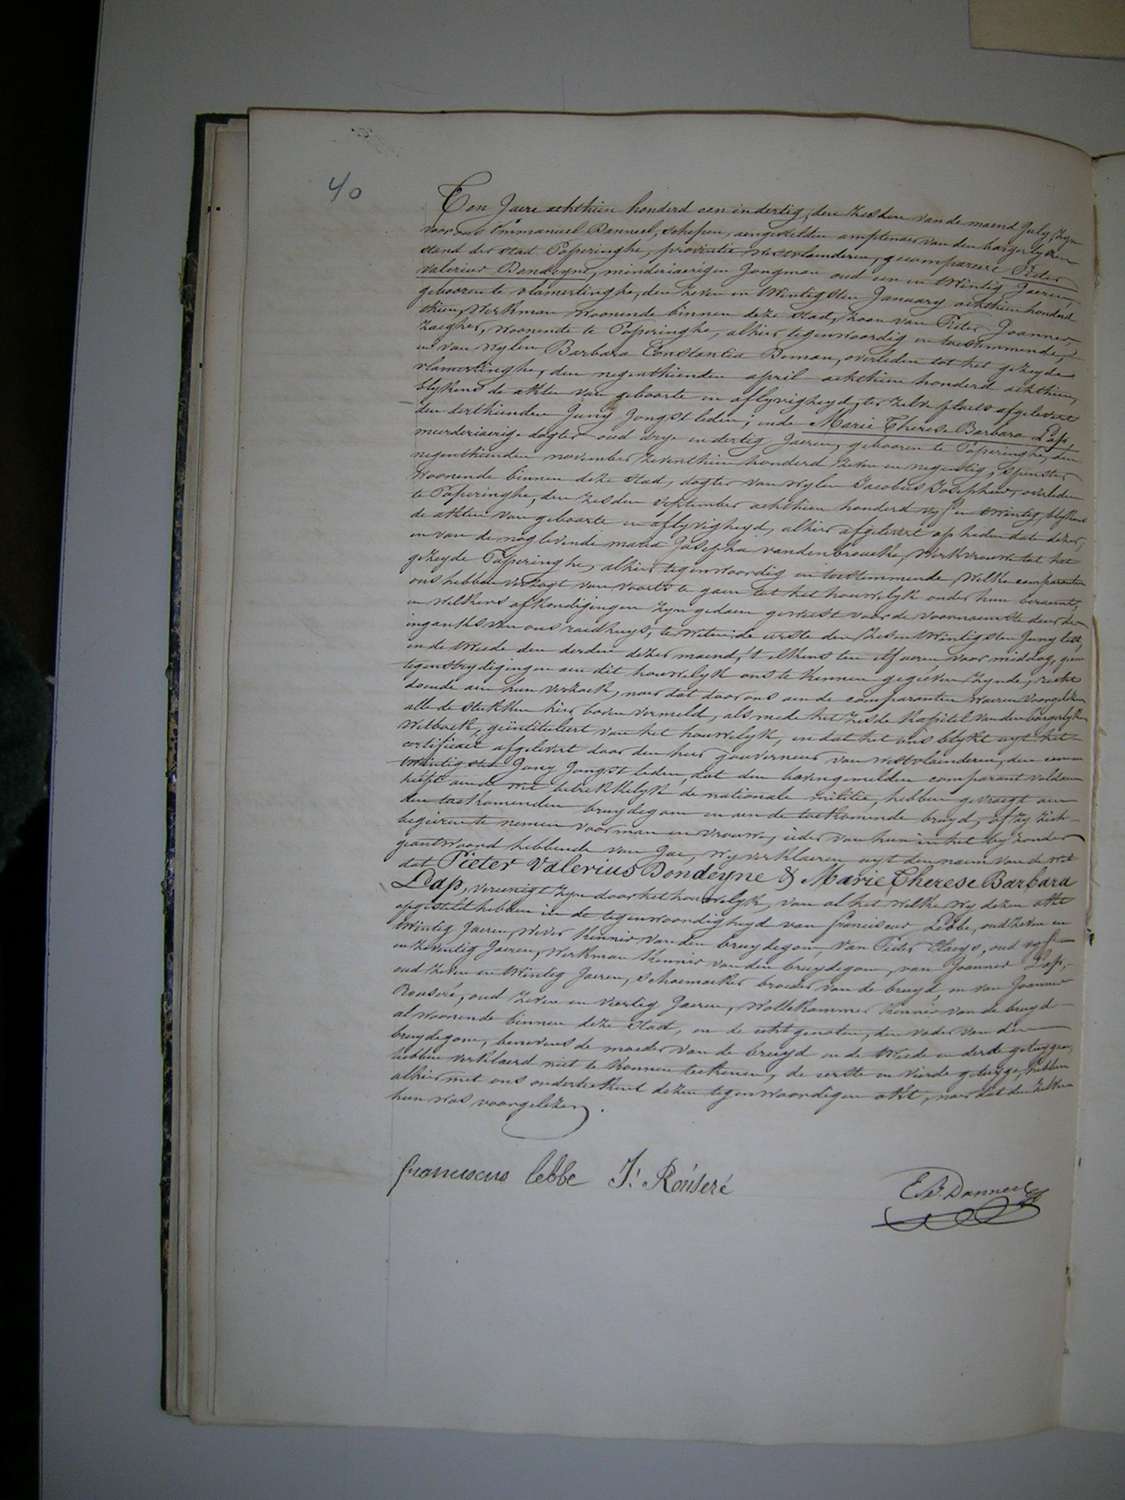 40
Ten Jaere achthien honderd een en dertig, den zesden van de maend July, zyn
voor ons Emmanuel Danneel, schepen, aengestelden amptenaer van den borgerlyken
stand der stad Poperinghe, provintie westvlaenderen, gecompareert Pieter
Valerius Dondeyne, minderjaerigen Jongman oud een en twintig Jaeren,
gebooren te vlamertinghe, den zeven en twintigsten January achthien honderd
thien, werkman woonende binnen deze stad, zoon van Pieter Joannes,
zaegher, woonende te Poperinghe, alhier tegenwoordig en toestemmende,
en van wylen Barbara Constantia Deman, overleden tot het gezeyde
vlamertinghe, den negenthienden april achthien honderd achthien,
blykens de akten van geboorte en aflyvigheyd, ter zelve plaets afgelevert
den derthienden Juny Jongst leden; ende Marie Therese Barbara Dap,
meerderjaerige dogter oud drye en dertig Jaeren, gebooren te Poperinghe, den
negenthienden november zeventhien honderd zeven en negentig, spinster
woonende binnen deze stad, dogter van wylen Jacobus Josephus, overleden
te Poperinghe, den zesden september achthien honderd vyf en twintig, blykens
de akten van geboorte en aflyvigheyd, alhier afgelevert op heden dato dezer,
en van de nog levende maria Josepha vandenbroucke, werkvrouwe tot het
gezeyde Poperinghe, alhier tegenwoordig en toestemmende, welke comparanten
ons hebben verzogt van voorts te gaen tot het houwelyk onder hun beraemt,
en welkers afkondigingen zyn gedaen geweest voor de voornaemste deur der
ingank van ons raedhuys, te weten: de eerste den zes en twintigsten Juny lest,
en de tweede den derden dezer maend, 't elkens ten elf uren voor middag, geen
tegenstrydigingen aen dit houwelyk ons te kennen gegeven zynde, recht
doende aen hun verzoek, naer dat door ons aen de comparanten waeren voorgelezen
alle de stukken hier boven vermeld, als mede het zesde kapitel van den borgerlyken
wetboek, geïntituleert van het houwelyk, en dat het ons blykt uyt het
certificaet afgelevert door den heer gouverneur van westvlaenderen, den een en
twintigsten Juny Jongst leden, dat den bovengemelden comparant voldaen
heeft aen de wet betrekkelyk de nationale militie, hebben gevraegt aen
den toekomenden bruydegom en aen de toekomende bruyd, of zy zich
begeiren te nemen voor man en vrouwe, ieder van hun in het byzonder
geantwoord hebbende van Jae, wy verklaeren uyt den naem van de wet
dat Pieter Valerius Dondeyne & Marie Therese Barbara
Dap, vereenigt zyn door het houwelyk, van al het welke wy dezen akt
opgestelt hebben in de tegenwoordigheyd van franciscus Lebbe, oud zeven en
twintig Jaeren, wever kennis van den bruydegom, van Pieter Claeys, oud vyf
en zeventig Jaeren, werkman kennis van den bruydegom, van Joannes Dap,
oud zeven en twintig Jaeren, schoemaeker broeder van de bruyd, en van Joannes
Rouseré, oud zeven en veertig Jaeren, wollekammer kennis van de bruyd
al woonende binnen deze stad, en de echtgenoten, den vader van den
bruydegom, benevens de moeder van de bruyd en de tweede en derde getuygen,
hebben verklaerd niet te konnen teekenen, de eerste en vierde getuyge, hebben
alhier met ons onderteekent dezen tegenwoordigen akt, naer dat den zelven
hun was voorgelezen.
franciscus lebbe J: Rouseré
E. Danneel